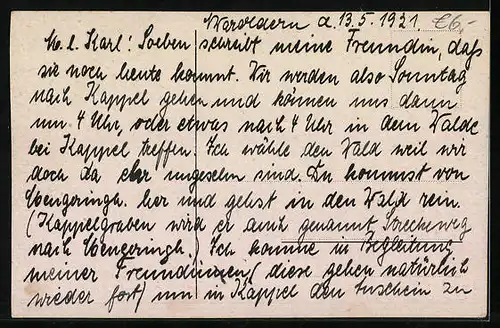 d. 13.5.1921. €6,-
M. l. Karl! Soeben schreibt meine Freundin, daß
sie noch heute kommt. Wir werden also Sonntag
nach Kappel gehen und können uns dann
um 4 Uhr, oder etwas nach 4 Uhr in dem Walde
bei Kappel treffen. Ich wähle den Wald weil wir
doch da eher ungesehn sind. Du kommst von
her und gehst in den Wald rein.
(Kappelgraben wird er auch genannt, Strecheweg
nach Ich komme in Begleitung
meiner Freundinnen (diese gehen natürlich
wieder fort) um in Kappel den Anschein zu